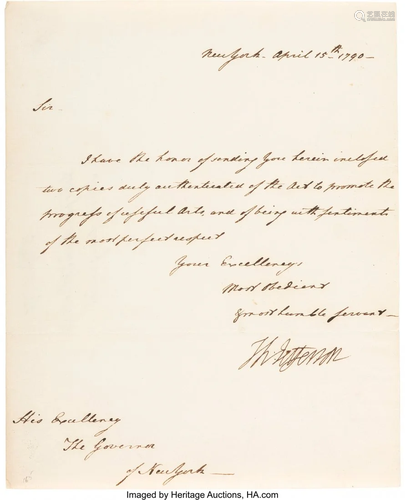 New York April 15th 1790 –
Sir
I have the honor of sending you herein inclosed
two copies duly authenticated of the Act to promote the
progress of useful Arts, and of being with sentiments
of the most perfect respect
Your Excellency's
Most obedient
& most humble servant –
Th Jefferson
His Excellency
The Governor
of New York –
Imaged by Heritage Auctions, HA.com